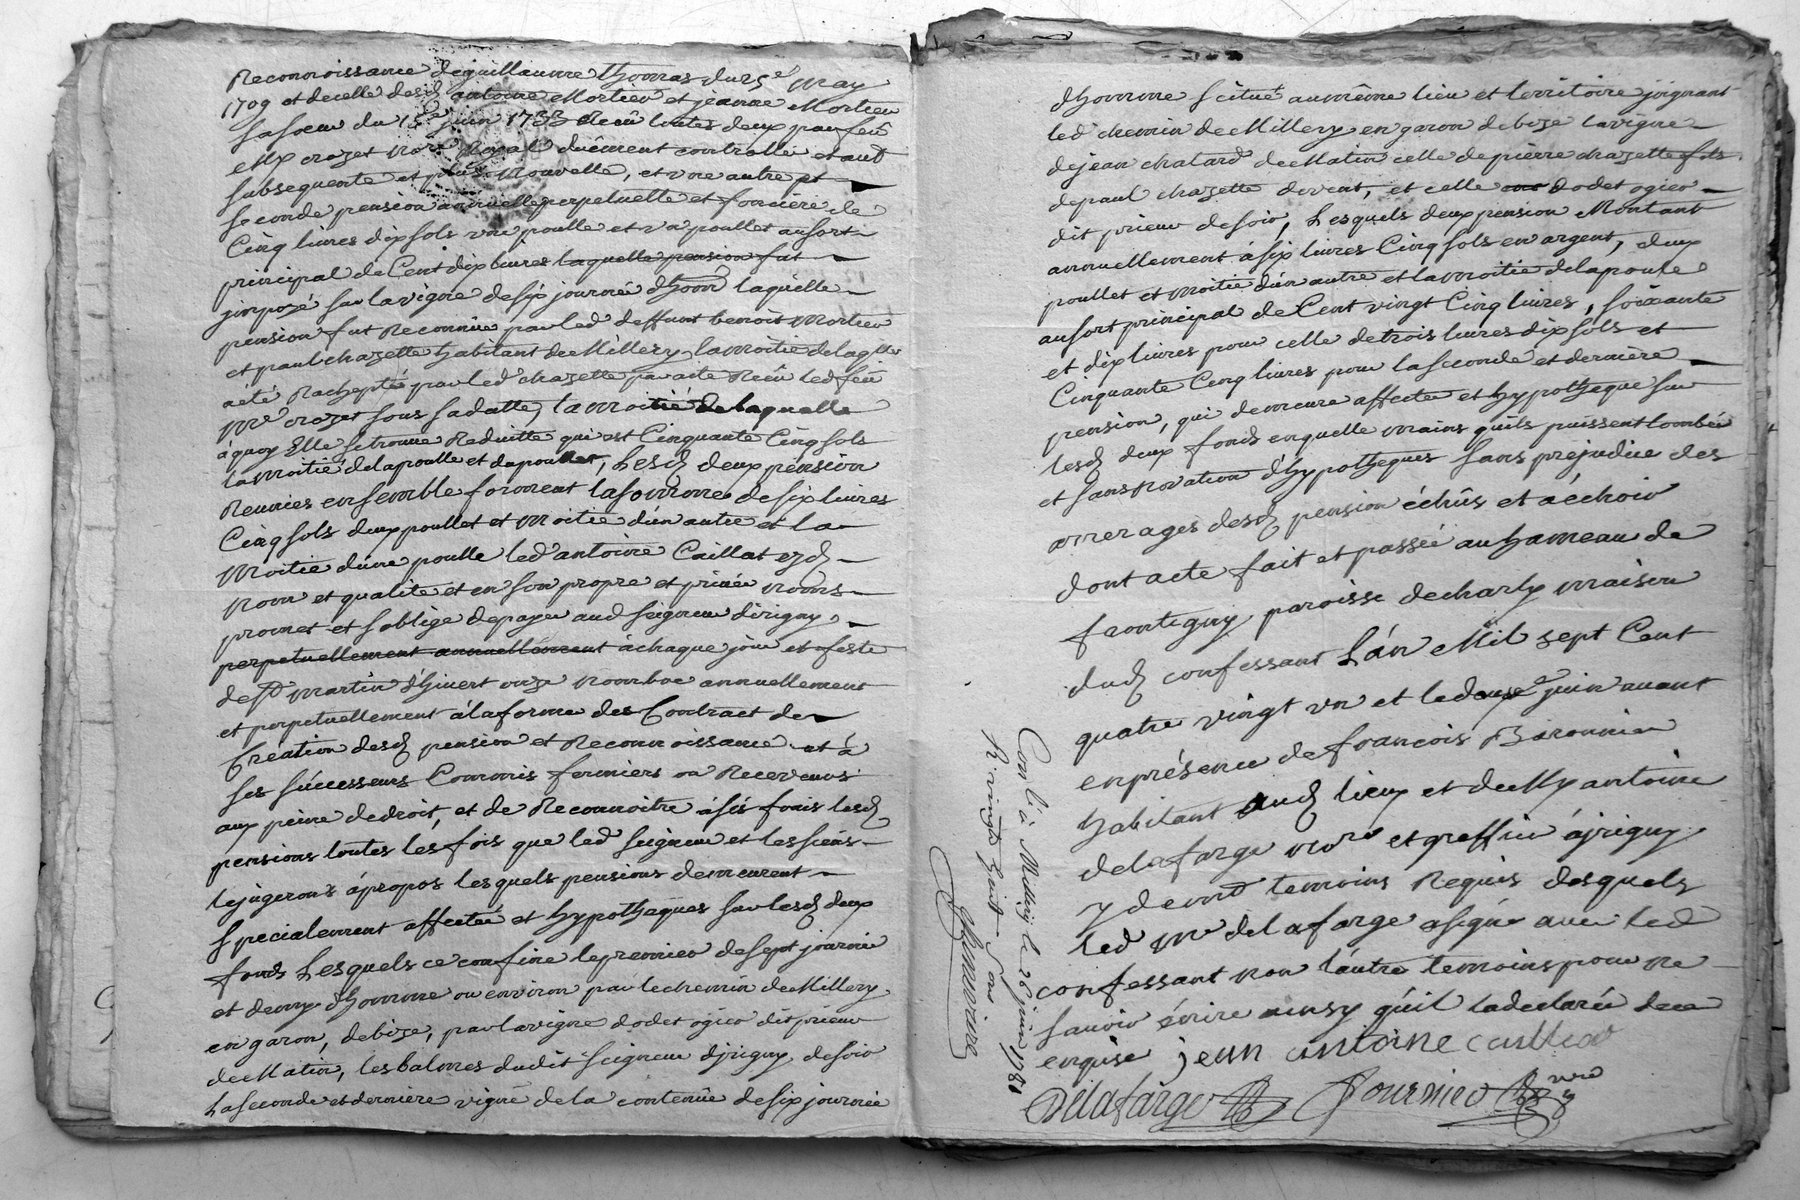 Reconnoissance de guillaume thomas du 25e may
1709 et de celle desd antoine Mortier et jeanne Mortier
sa soeur du 15e juin 1733 Receü toutes deux par feü
Me crozet Nore Royal düement controllé et aud
subsequente et plus Nouvelle, et une autre et
seconde pension annuelle perpetuelle et fonciere de
Cinq livres dix sols une poulle et un poullet au sort
principal de Cent dix livres laquelle pension fut
jmpozé sur la vigne de six journée dhome laquelle
pension fut Reconnüe par led deffunt benoit Mortier
et paul chazette habitant de Millery, la moitié de laqlle
a été Racheptée par led chazette par acte Receü led feü
Me crozet sous sa datte, la moitié de laquelle
à quoy Elle se trouve Reduitte qui est Cinquante Cinq sols
la moitié de la poulle et du poullet, Lesd deux pension
Reunies ensemble forment la somme de six livres
Cinq sols deux poullet et moitié d'un autre et la
moitié d'une poulle led antoine Caillat ezd
Nom et qualité et en son propre et privée Noms
promet et s'oblige de payer aud seigneur d'irigny,
perpetuellement annuellement à chaque jour et feste
de St martin d'hivert onze Novembre annuellement
et perpetuellement à la forme des Contract de
Création desd pension et Reconnoissance et à
ses súccesseurs Commis fermiers ou Receveurs
aux peine de droit, et de Reconnoitre à ses frais lesd
pensions toutes les fois que led seigneur et les siens
le jugerons à propos lesquels pensions demeurent
specialement affectée et hypotheques sur lesd deux
fonds Lesquels ce confine le premier de sept journée
et demy d'homme ou environ par le chemin de Millery
en garon, de bize, par la vigne dodet ogier dit prieur
de Matin, les balmes dudit seigneur d'jrigny, de soir
La seconde et derniere vigne de la contenüe de six journée
d'homme scitué au même lieu et territoire joignant
led chemin de Millery en garon de bize la vigne
de jean chatard de Matin celle de pierre chazette fils
de paul chazette devent, et celle dodet ogier
dit prieur de soir, Lesquels deux pension Montant
annuellement à six livres Cinq sols en argent, deux
poullet et moitié d'un autre et la moitié de la poule
au sort principal de Cent vingt Cinq livres, soixante
et dix livres pour celle de trois livres dix sols et
Cinquante Cinq livres pour la seconde et derniere
pension, qui demeure affectée et hypotheque sur
lesd deux fonds en quelle mains qu'ils puissent tomber
et sans Novation d'hypotheques sans prejudice des
arrerages desd pension échüs et à échoir
dont acte fait et passée au hameau de
frontigny paroisse de charly maison
dud confessant L'an Mil sept Cent
quatre vingt un et le douze juin avant
en présence de francois Baronnier
habitant aud lieux et de Me antoine
delafarge nore et greffier à jrigny
y demt temoins Requis desquels
led Me delafarge a signé avec led
confessant non l'autre temoins pour ne
savoir écrire ainsy qu'il la declarée de ce
enquise jean antoine cailliat
Delafarge Fournier Nre
Con lé à Millery le 26 juin 1781
R. vingt huit sous